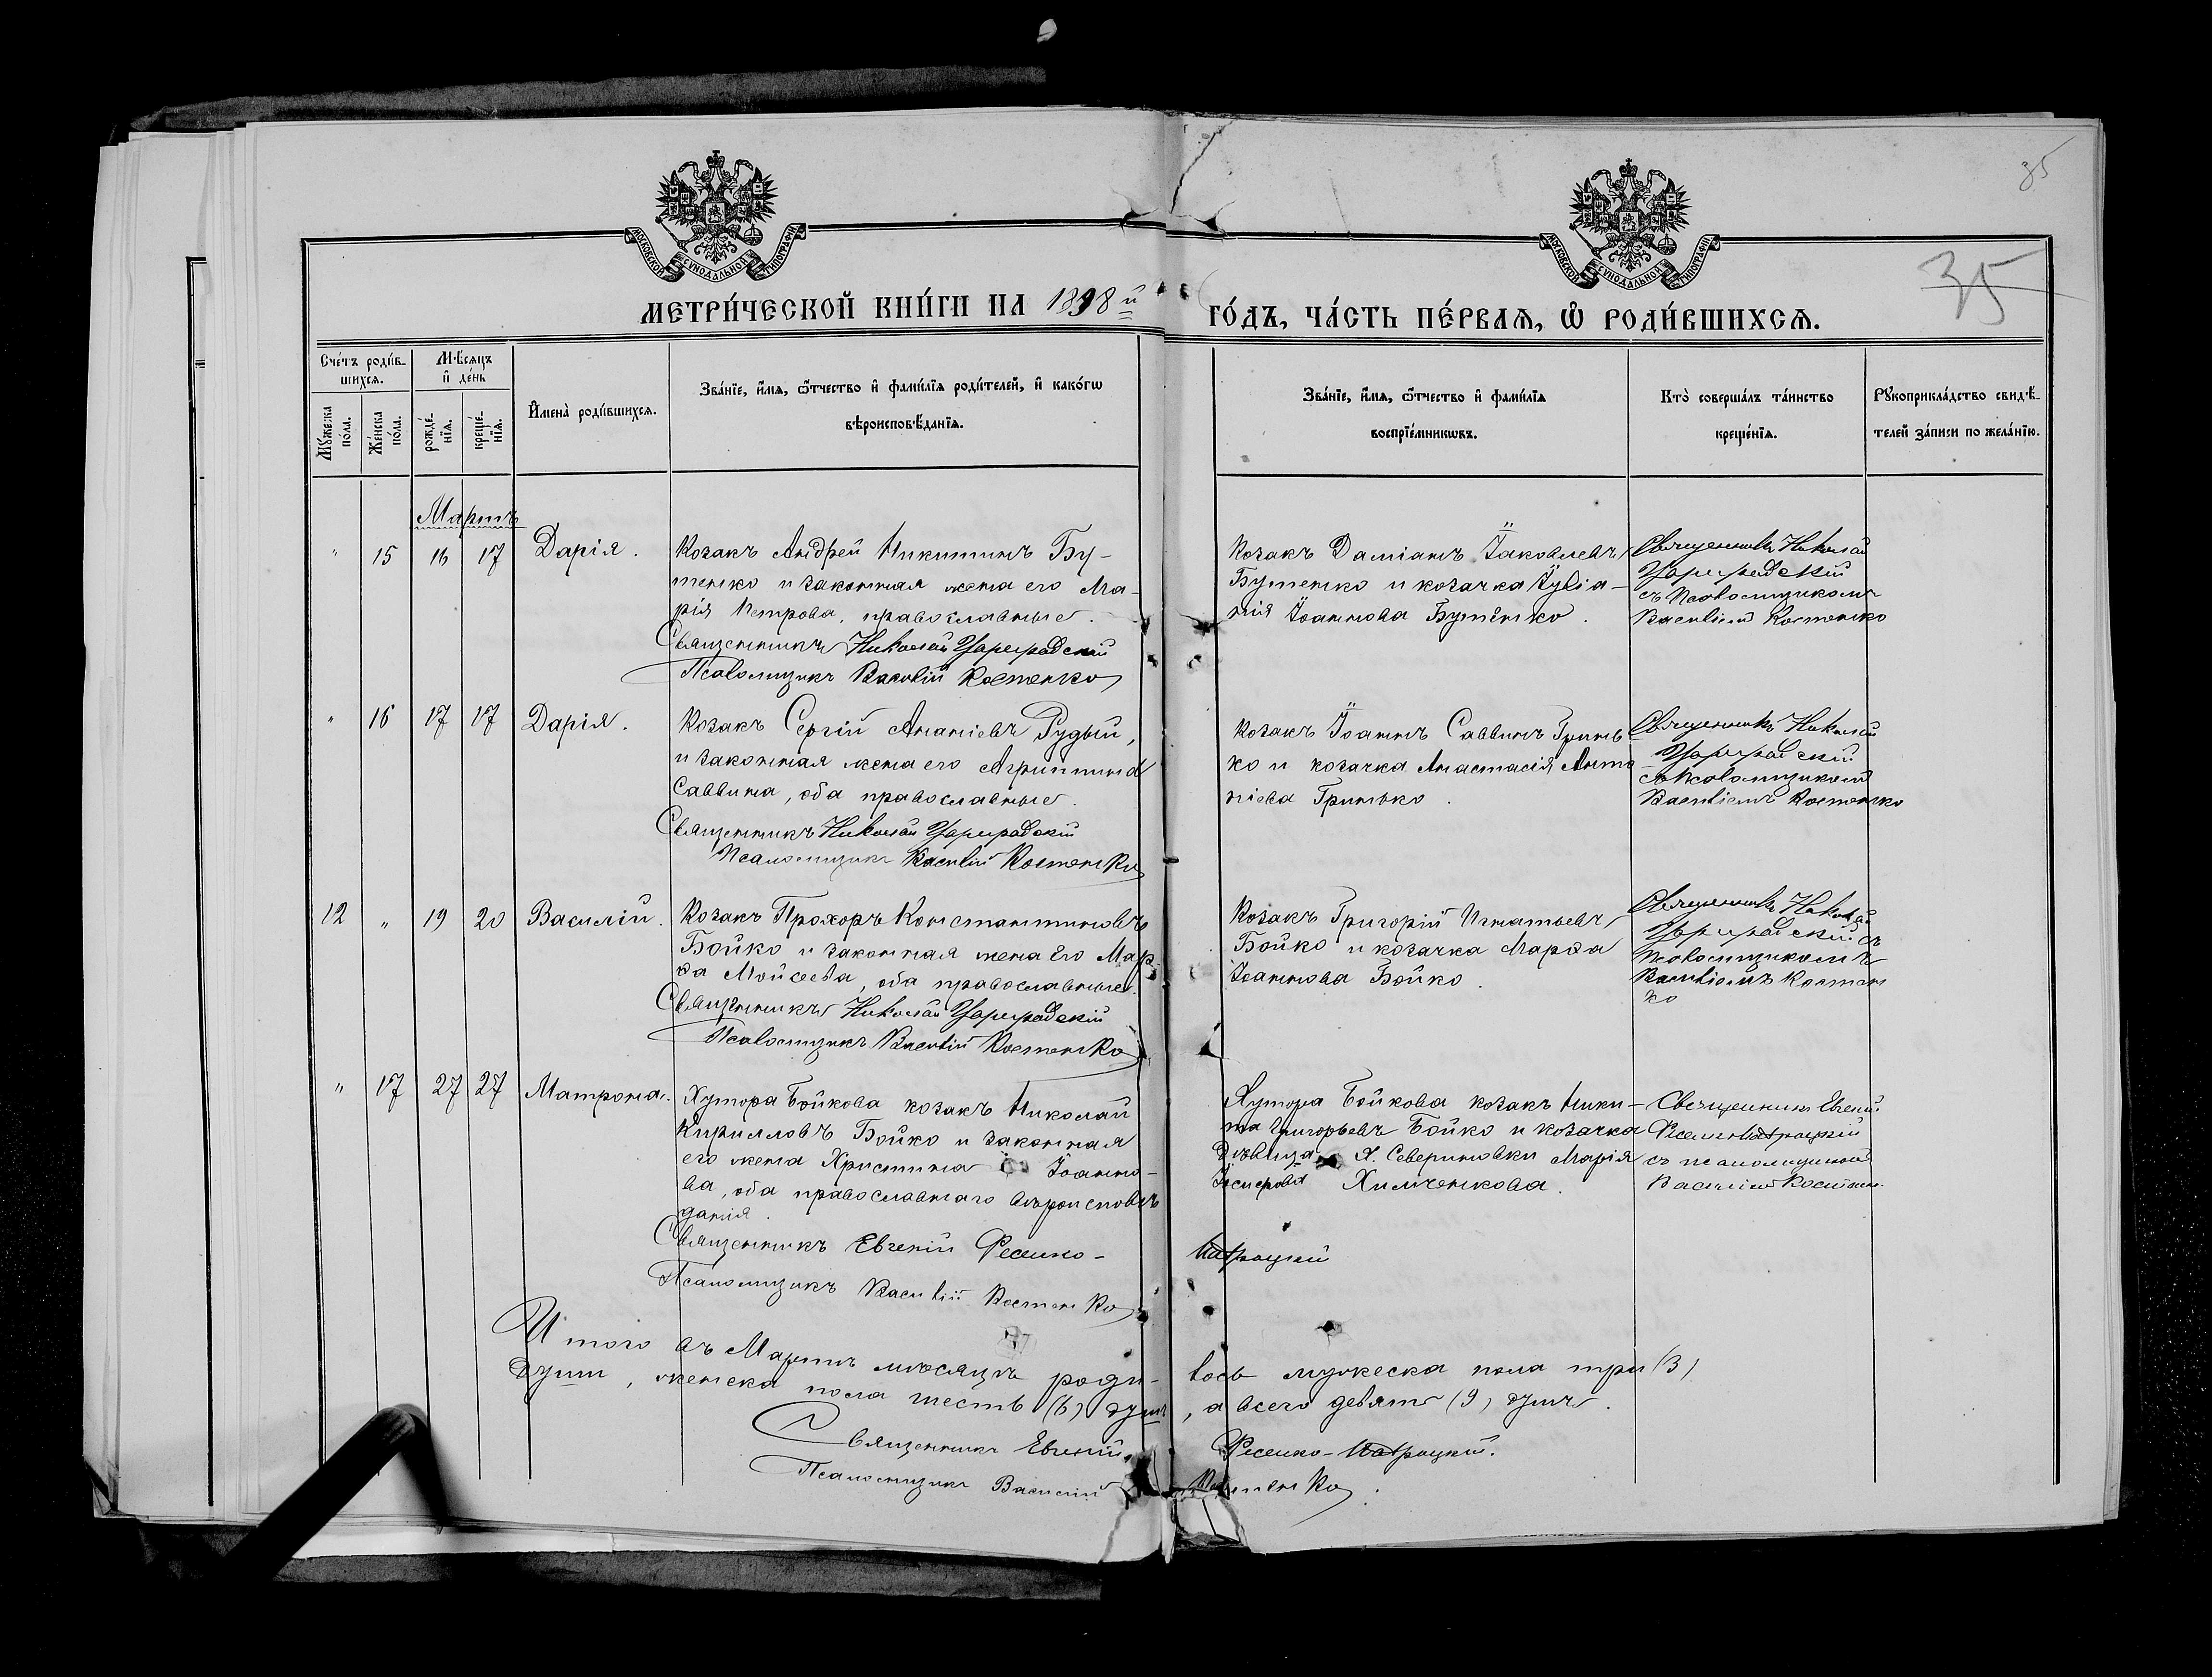 35
МОСКОВСКОЙ СУНОДАЛЬНОЙ ТИПОГРАФІИ
МОСКОВСКОЙ СУНОДАЛЬНОЙ ТИПОГРАФІИ
35
МЕТРИ́ЧЕСКОЙ КНИ́ГИ НА 1898 й
ГО́ДЪ, ЧА́СТЬ ПЕ́РВАѦ, Ѡ РОДИ́ВШИХСѦ.
Сче́тъ роди́в-
шихсѧ.
Мꙋ́жеска по́ла.
Же́нска по́ла.
М́ѣсѧцъ
и҆ де́нь
рожде́-
нїѧ.
креще́-
нїѧ.
И҆мена̀ роди́вшихсѧ.
Зва́нїе, и҆́мѧ, ѻ҆́тчество и҆ фами́лїѧ роди́телей, и҆ како́гѡ
вѣроисповѣ́данїѧ.
Зва́нїе, и҆́мѧ, ѻ҆́тчество и҆ фами́лїѧ
воспрїе́мникѡвъ.
Кто̀ соверша́лъ та́инство
креще́нїѧ.
Рꙋкоприкла́дство свидѣ́-
телей за́писи по жела́нїю.
Мартъ
" 15 16 17 Дарія.
Козакъ Андрей Никитинъ Бу-
тенко и законная жена его Ма-
рія Петрова, православные.
Священникъ Николай Цареградскій
Псаломщикъ Василій Костенко
Козакъ Даміанъ Іаковлевъ
Бутенко и козачка Іуліа-
нія Іоаннова Бутенко.
Священникъ Николай
Цареградскій
съ Псаломщикомъ
Василіемъ Костенко
" 16 17 17 Дарія.
Козакъ Сергій Ананіевъ Рудый,
и законная жена его Агриппина
Саввина, оба православные.
Священникъ Николай Цареградскій
Псаломщикъ Василій Костенко
Козакъ Іоаннъ Саввинъ Гринь-
ко и козачка Анастасія Анто-
ніева Гринько.
Священникъ Николай
Цареградскій
съ Псаломщикомъ
Василіемъ Костенко
12 " 19 20 Василій.
Козакъ Прохоръ Константиновъ
Бойко и законная жена его Мар-
ѳа Мойсеева, оба православные.
Священникъ Николай Цареградскій
Псаломщикъ Василій Костенко
Козакъ Григорій Игнатьевъ
Бойко и козачка Марѳа
Іоаннова Бойко.
Священникъ Николай
Цареградскій съ
Псаломщикомъ
Василіемъ Костен
ко
" 17 27 27 Матрона.
Хутора Бойкова козакъ Николай
Кирилловъ Бойко и законная
его жена Христина Іоанно-
ва, оба православнаго вѣроисповѣ
данія.
Священникъ Евгеній
Псаломщикъ Василій Костенко
Хутора Бойкова козакъ Ники-
та Григорьевъ Бойко и козачка
дѣвица Х. Севериновки Марія
Химченкова.
Священникъ Евгеній
съ псаломщикомъ
Василіемъ Костенко
Итого въ Мартѣ мѣсяцѣ роди-
лось мужеска пола три (3)
душ, женска пола шесть (6) душъ
, а всего девять (9) душъ.
Священникъ Евгеній
Псаломщикъ Василій
Костенко.